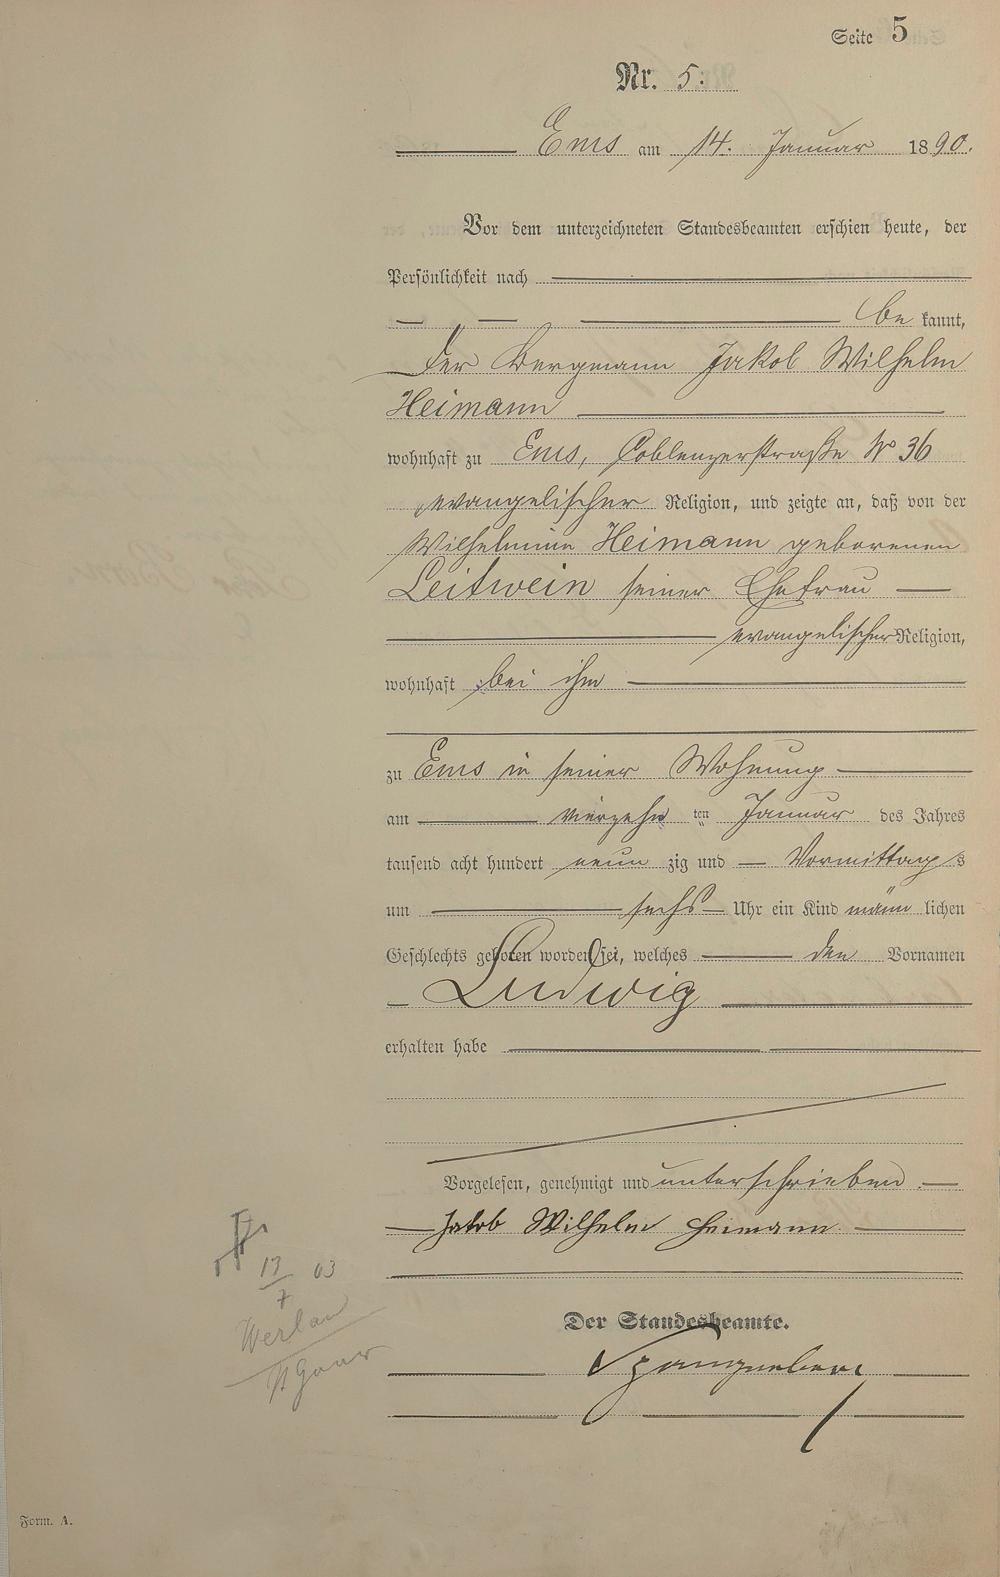 Seite 5
Nr. 5.
Ems am 14. Januar 1890.
Vor dem unterzeichneten Standesbeamten erschien heute, der
Persönlichkeit nach
be kannt,
der Bergmann Jakob Wilhelm
Heimann
wohnhaft zu Ems, Coblenzerstraße No 36
evangelischer Religion, und zeigte an, daß von der
Wilhelmine Heimann geborenen
Leitwein seiner Ehefrau
evangelischer Religion,
wohnhaft bei ihm
zu Ems in seiner Wohnung
am vierzehn ten Januar des Jahres
tausend acht hundert neun zig und Vormittags
um sechs Uhr ein Kind männ lichen
Geschlechts geboren worden sei, welches den Vornamen
Ludwig
erhalten habe
Vorgelesen, genehmigt und unterschrieben.
Jakob Wilhelm Heimann
Der Standesbeamte.
13/7 03
Werlau
St Goar
Form. A.